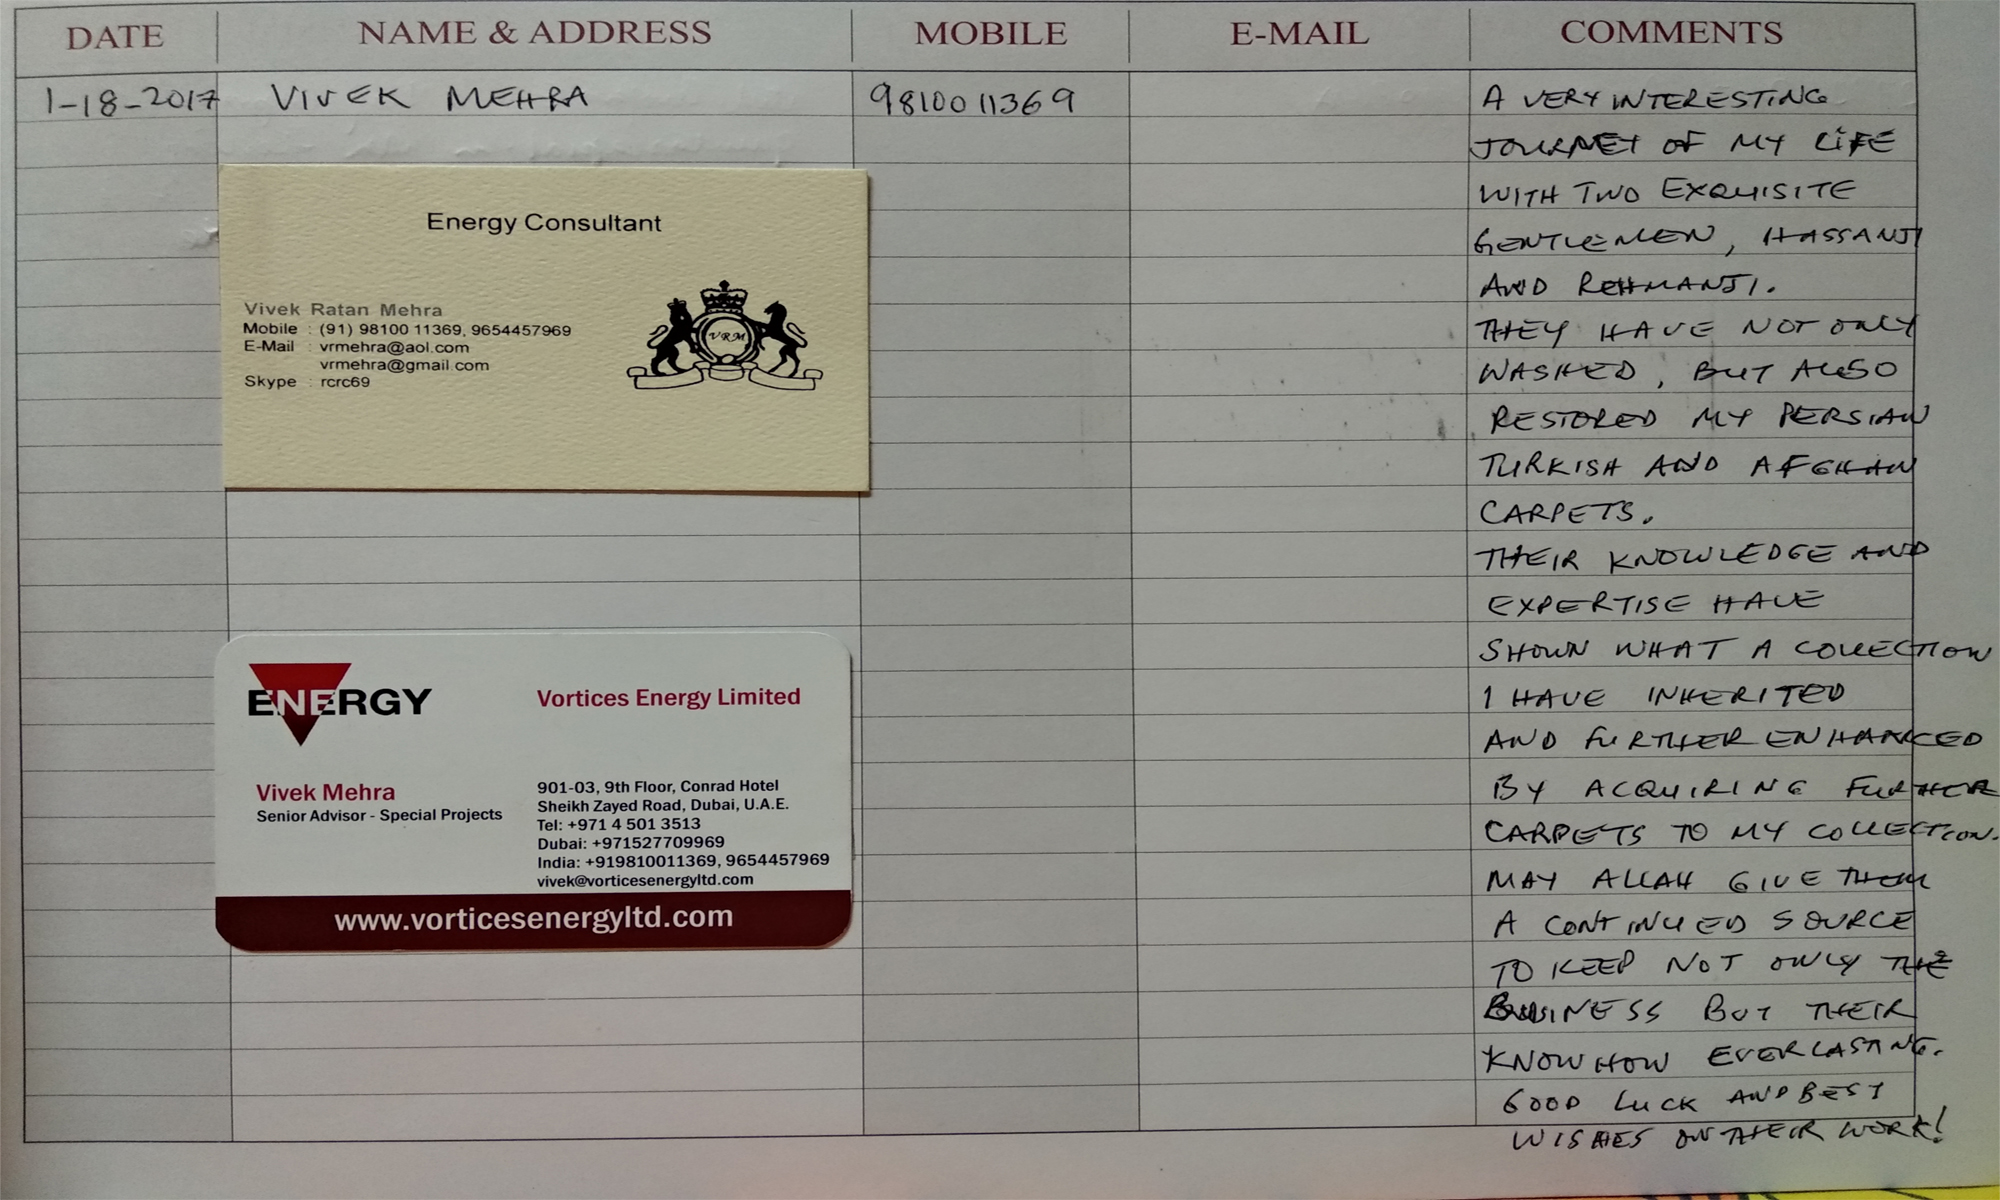 DATE NAME & ADDRESS MOBILE E-MAIL COMMENTS
1-18-2017 VIVEK MEHRA 9810011369
Energy Consultant
Vivek Ratan Mehra
Mobile : (91) 98100 11369, 9654457969
E-Mail : vrmehra@aol.com
vrmehra@gmail.com
Skype : rcrc69
VRM
ENERGY
Vortices Energy Limited
Vivek Mehra
Senior Advisor - Special Projects
901-03, 9th Floor, Conrad Hotel
Sheikh Zayed Road, Dubai, U.A.E.
Tel: +971 4 501 3513
Dubai: +971527709969
India: +919810011369, 9654457969
vivek@vorticesenergyltd.com
www.vorticesenergyltd.com
A VERY INTERESTING
JOURNEY OF MY LIFE
WITH TWO EXQUISITE
GENTLEMEN, HASSANJI
AND REHMANJI.
THEY HAVE NOT ONLY
WASHED, BUT ALSO
RESTORED MY PERSIAN
TURKISH AND AFGHAN
CARPETS.
THEIR KNOWLEDGE AND
EXPERTISE HAVE
SHOWN WHAT A COLLECTION
I HAVE INHERITED
AND FURTHER ENHANCED
BY ACQUIRING FURTHER
CARPETS TO MY COLLECTION.
MAY ALLAH GIVE THEM
A CONTINUED SOURCE
TO KEEP NOT ONLY THE
BUSINESS BUT THEIR
KNOWHOW EVERLASTING.
GOOD LUCK AND BEST
WISHES ON THEIR WORK!